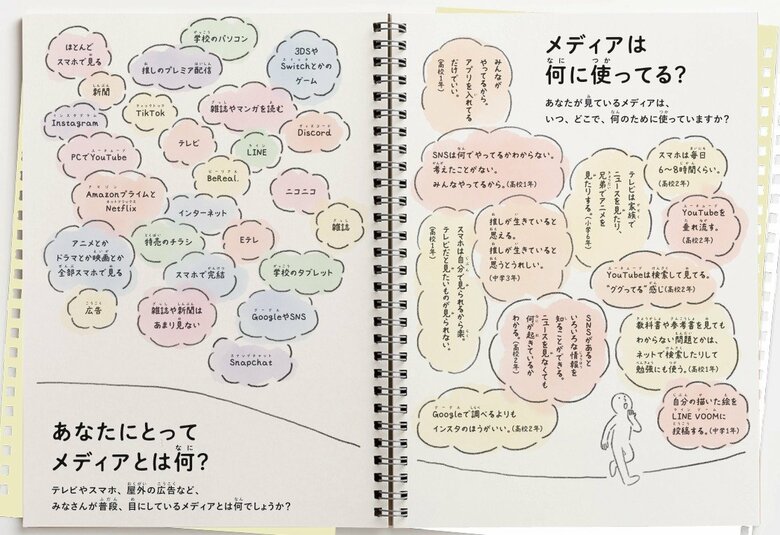 ほとんど
スマホで見る
学校のパソコン
推しのプレミア配信
3DSや
Switchとかの
ゲーム
新聞
Instagram
TikTok
雑誌やマンガを読む
Discord
テレビ
LINE
PCでYouTube
BeReal.
ニコニコ
Amazonプライムと
Netflix
インターネット
雑誌
アニメとか
ドラマとか映画とか
全部スマホで見る
特売のチラシ
Eテレ
スマホで完結
学校のタブレット
広告
雑誌や新聞は
あまり見ない
GoogleやSNS
Snapchat
あなたにとって
メディアとは何?
テレビやスマホ、屋外の広告など、
みなさんが普段、目にしているメディアとは何でしょうか?
メディアは
何に使ってる?
あなたが見ているメディアは、
いつ、どこで、何のために使っていますか?
みんなが
やってるから。
アプリを入れてる
だけでいい。
(高校1年)
SNSは何でやってるかわからない。
考えたことがない。
みんなやってるから。(高校1年)
テレビは家族で
ニュースを見たり、
兄弟でアニメを
見たりする。(小学6年)
スマホは毎日
6〜8時間くらい。
(高校2年)
YouTubeを
垂れ流す。
(高校2年)
スマホは自分で見られるから楽。
テレビだと見たいものが見られない。
(高校1年)
推しが生きていると
思える。
推しが生きていると
思うとうれしい。
(中学3年)
YouTubeは検索して見てる。
“ググってる”感じ(高校2年)
SNSがあると
いろいろな情報を
知ることができる。
ニュースを見なくても
何が起きているか
わかる。(高校2年)
教科書や参考書を見ても
わからない問題とかは、
ネットで検索したりして
勉強にも使う。(高校1年)
Googleで調べるよりも
インスタのほうがいい。(高校2年)
自分の描いた絵を
LINE VOOMに
投稿する。(中学1年)